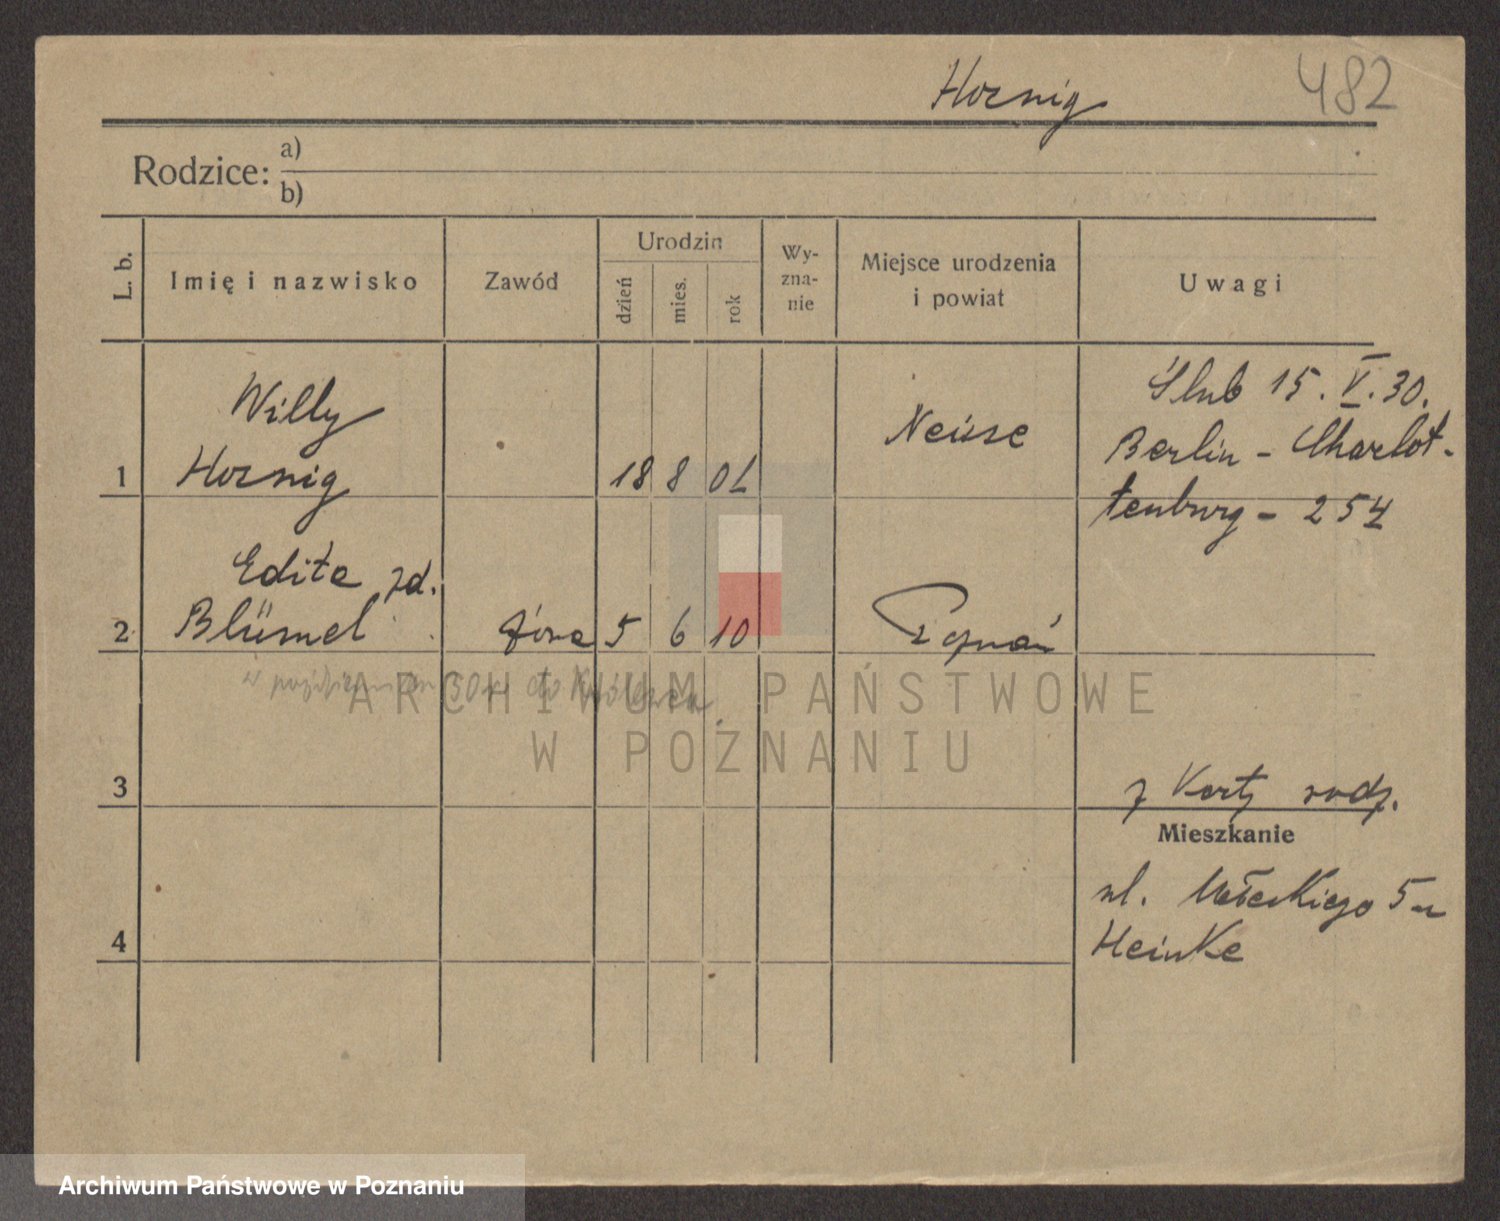 Hornig 482
Rodzice: a)
b)
L. b. Imię i nazwisko Zawód Urodzin dzień mies. rok Wy-zna-nie Miejsce urodzenia i powiat Uwagi
Willy
1 Hornig 18 8 01 Neisse
Ślub 15. V. 30.
Berlin - Charlot-
tenburg - 254
Edite zd.
2 Blümel żona 5 6 10 Poznań
w październiku 30 r. do
3
z Karty rodz.
Mieszkanie
ul. Małeckiego 5 u
Heinke
4
ARCHIWUM PAŃSTWOWE
W POZNANIU
Archiwum Państwowe w Poznaniu